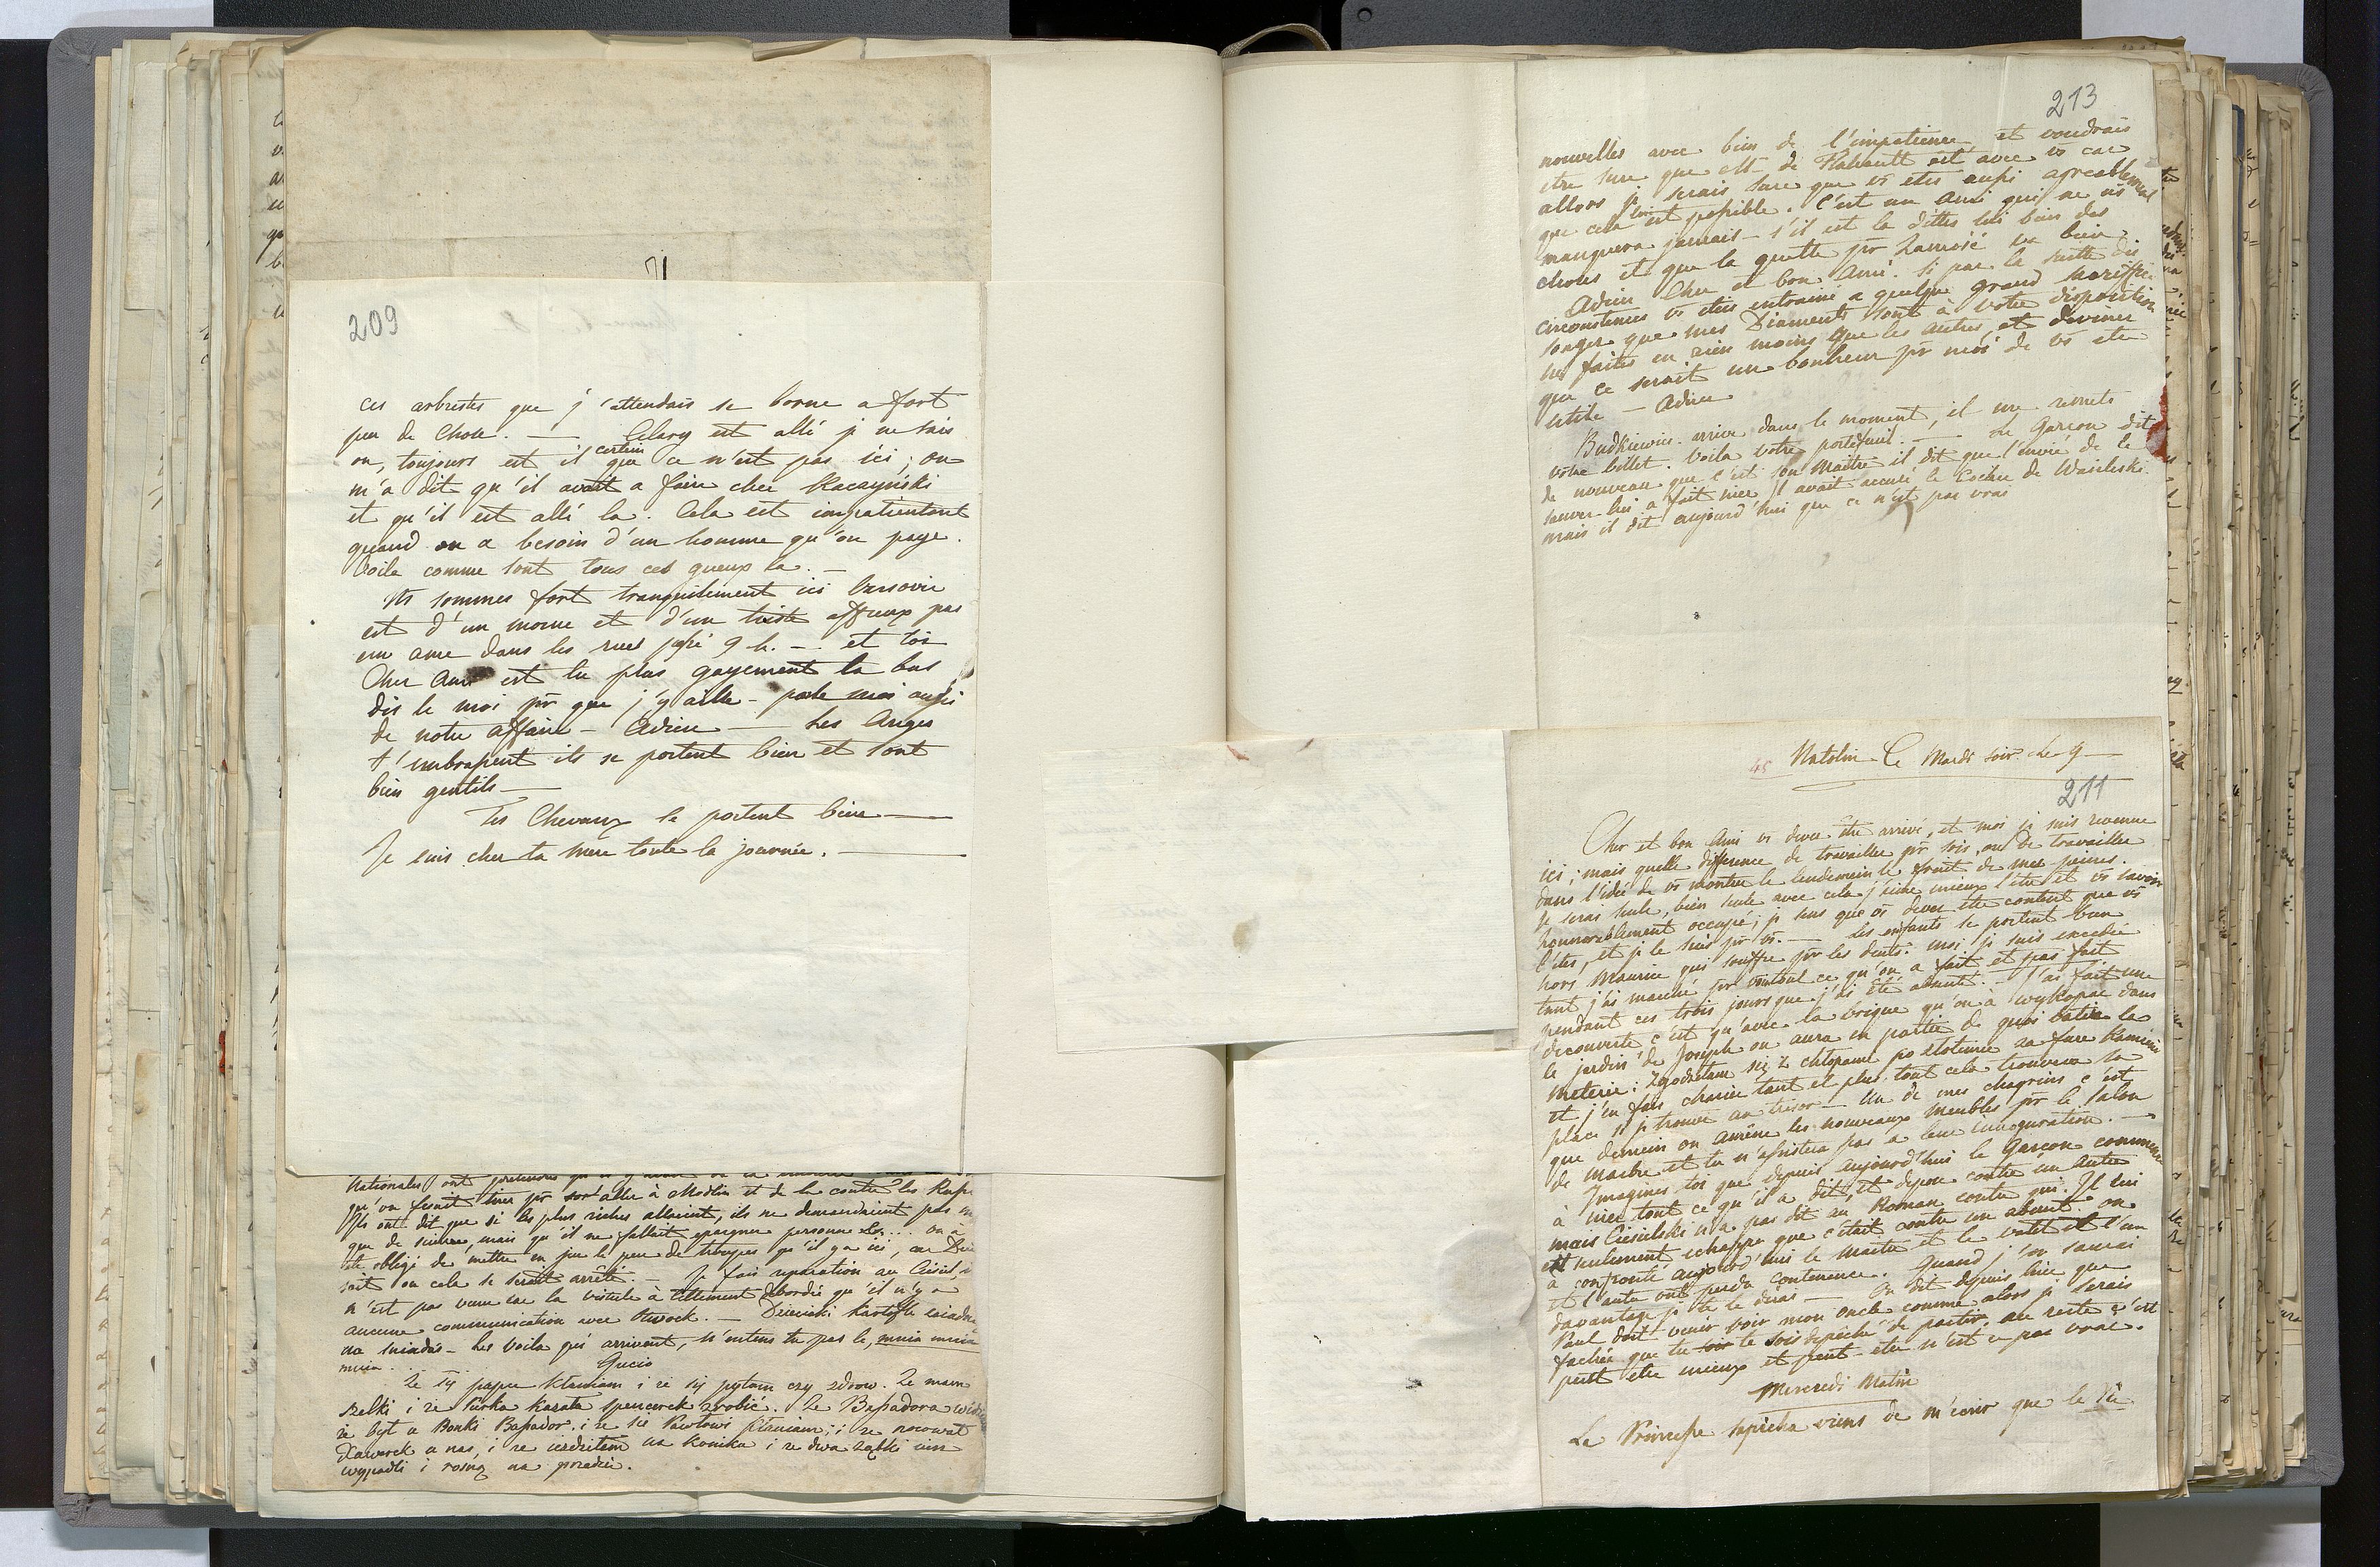 209
ces arbustes que j'attendais se borne a fort
peu de chose. — Celary est allé je ne sais
ou, toujours est il certain que ce n'est pas ici; on
m'a dit qu'il avait a faire chez Raczyński
et qu'il est allé la. Cela est impatientant
quand on a besoin d'un homme qu'on paye.
Voila comme sont tous ces gueux la. —
Ns sommes fort tranquilement ici Varsovie
est d'un morne et d'un triste affreux pas
une ame dans les rues passé 9 h. — et toi
Cher Ami est tu plus gayement la bas
dis le moi pr que j'y aille — parle moi aussi
de notre affaire — Adieu — Les Anges
t'embrassent ils se portent bien et sont
bien gentils —
Tes Chevaux se portent bien —
Je suis chez ta Mere toute la journée. —
Nationales ont
qu'on ferait tirer pr sort aller à Modlin et de la contre les Russ
Ils ont dit que si les plus riches allaient, ils ne demandaient pas
que de suivre, mais qu'il ne fallait epargner personne &... on a
été obligé de mettre en jeu le peu de troupes qu'il y a ici, car Dieu
sait ou cela se serait arrêté. — Je fais reparation au Ciesiel,
n'est pas venu car la vistule a tellement debordé qu'il n'y a
aucune communication avec Otwock. — Dzieciaki kartofle
na sniadas — Les voila qui arrivent, n'entens tu pas le, mnia mnia
mnia . . . Gucio
Ze się papie kłaniam i ze się pytam czy zdrow. Ze mam
szelki i ze Ciórka kazała spencerek zrobić. Ze Bassadora
ze był u Bonki Bassador. i ze się Pawłowi kłaniam; i ze nocował
Xawerek u nas, i ze iezdziłem na koniku i ze dwa ząbki
wypadli i rosną na przedzie.
213
nouvelles avec bien de l'impatience et voudrais
etre sure que Mr de Flahault est avec vs car
allors je serais sure que vs etes aussi agreablement
que cela est possible. C'est un Ami qui ne vs
manquera jamais — s'il est la dittes lui bien des
choses et que la goutte pr Zamość va bien.
Adieu Cher et bon Ami. Si par la suitte des
circonstances vs etiez entrainé a quelque grand sacriffice
songez que mes Diaments sont à votre disposition
ne faites en rien moins que les autres, et devinez
que ce serait un bonheur pr moi de vs etre
utile — Adieu
Budkiewicz arrive dans le moment, il me remets
votre billet. Voila votre portefeuil. — Le Garcon dit
de nouveau que c'est son Maître il dit que l'envie de le
sauver lui a fait nier Il avait accusé le Cocher de Wasileski
mais il dit aujourd'hui que ce n'est pas vrai
45 Natolin Ce Mardi soir Le 9 —
211
Cher et bon Ami vs devez être arrivé, et moi je suis revenue
ici; mais quelle difference de travailler pr soi, ou de travailler
dans l'idée de vs montrer le lendemain le fruit de mes peines.
Je serai seule, bien seule avec cela j'aime mieux l'etre et vs savoir
honnorablement occupé; je sens que vs devez etre content que vs
l'etes, et je le suis pr vs. — Les enfants se portent bien
hors Maurice qui souffre pr les dents. moi je suis excedée
tant j'ai marché pr voir tout ce qu'on a fait et pas fait
pendant ces trois jours que j'ai été absente. — J'ai fait une
decouverte c'est qu'avec la brique qu'on à wykopać dans
le jardin de Joseph on aura en partie de quoi batir la
meterie: Zgodziłam się z chłopami po złotemu za furę kamieni
et j'en fais charier tant et plus. tout cela trouvera sa
place si je trouve au trésor — Un de mes chagrins c'est
que demain on amêne les nouveaux meubles pr le salon
de marbre et tu n'assistera pas a leur innoguration. —
Imagines toi que depuis aujourd'hui le Garcon commence
à nier tout ce qu'il a dit, et depose contre un autre
mais Ciesielski n'a pas dit au Roman contre qui. Il lui
est seulement echappé que c'était contre un absent. on
a confronté aujourd'hui le Maitre et le valet et l'un
et l'autre ont perdu contenence. Quand j'en saurai
davantage je te le dirai — On dit depuis hier que
Paul doit venir voir mon oncle comme alors je serais
fachée que tu te sois depeché de partir. au reste c'est
peut etre mieux et peut-etre n'est ce pas vrai.
Mercredi Matin
La Princesse Sapieha viens de m'ecrire que le